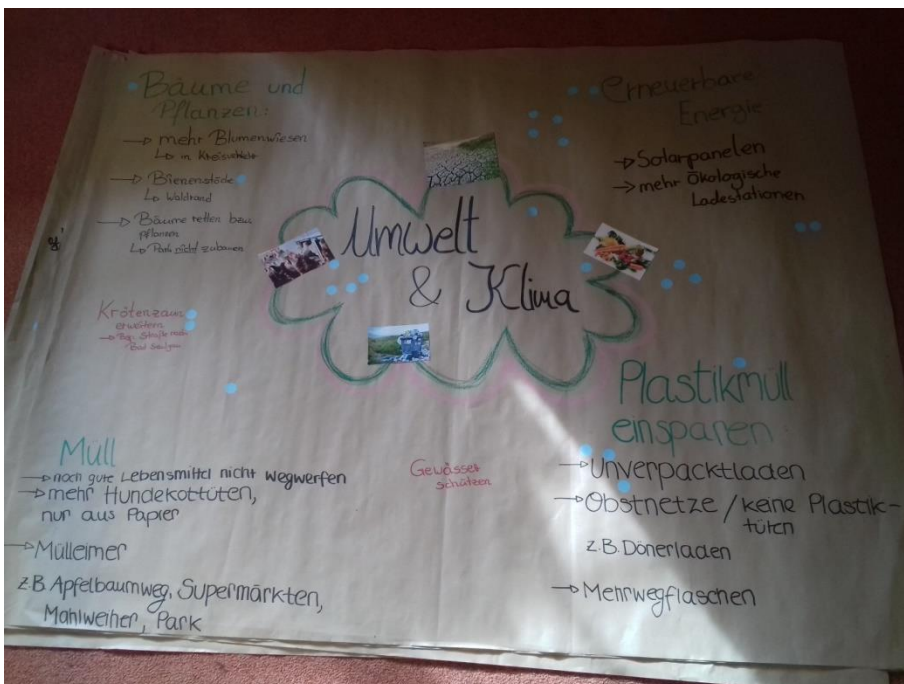 Bäume und
Pflanzen:
→ mehr Blumenwiesen
↳ in Kreisverkehr
→ Bienenstöcke
↳ Waldrand
→ Bäume retten bzw.
pflanzen
↳ Park nicht zubauen
Krötenzaun
erweitern
→ Bsp. Straße nach
Bad Saulgau
Umwelt
& Klima
Erneuerbare
Energie
→ Solarpanelen
→ mehr Ökologische
Ladestationen
Müll
→ noch gute Lebensmittel nicht wegwerfen
→ mehr Hundekottüten,
nur aus Papier
→ Mülleimer
z.B. Apfelbaumweg, Supermärkten,
Mahlweiher, Park
Gewässer
schützen
Plastikmüll
einsparen
→ Unverpacktladen
→ Obstnetze / keine Plastik-
tüten
z.B. Dönerladen
→ Mehrwegflaschen